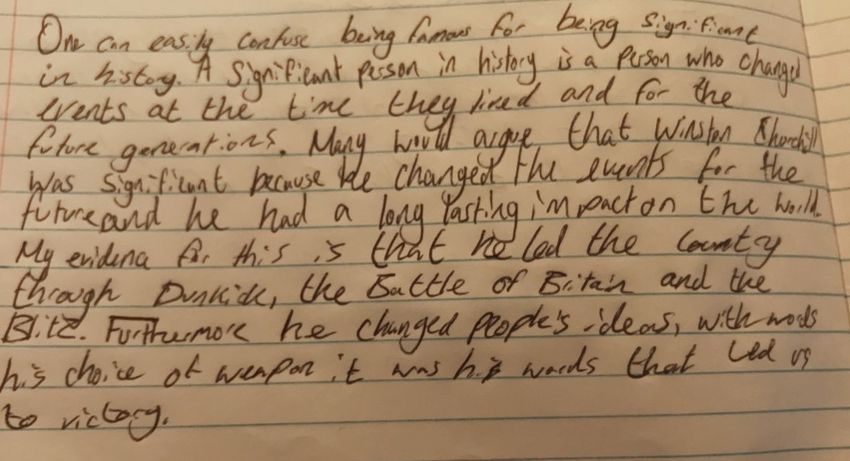 One can easily confuse being famous for being significant
in history. A significant person in history is a person who changed
events at the time they lived and for the
future generations. Many would argue that Winston Churchill
was significant because he changed the events for the
future and he had a long lasting impact on the world.
My evidence for this is that he led the country
through Dunkirk, the Battle of Britain and the
Blitz. Furthermore he changed people's ideas, with words
his choice of weapon it was his words that led us
to victory.